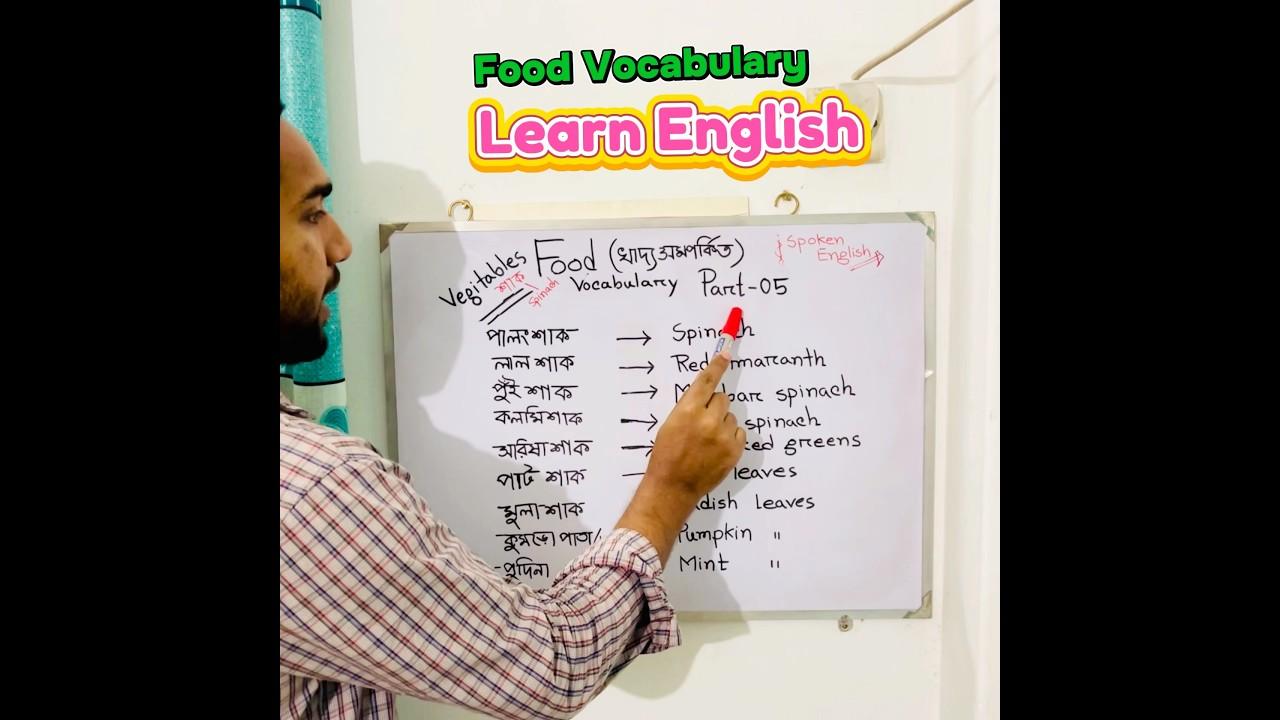 Food Vocabulary
Learn English
Vegitables
শাক
Spinach
Food (খাদ্য সম্পর্কিত)
Vocabulary Part-05
Spoken
English
পালংশাক → Spinach
লাল শাক → Red maranth
পুঁই শাক → spinach
কলমিশাক → spinach
সরিষা শাক → greens
পাট শাক leaves
মুলা শাক leaves
কুমড়ো পাতা/ Pumpkin "
-পুদিনা Mint "